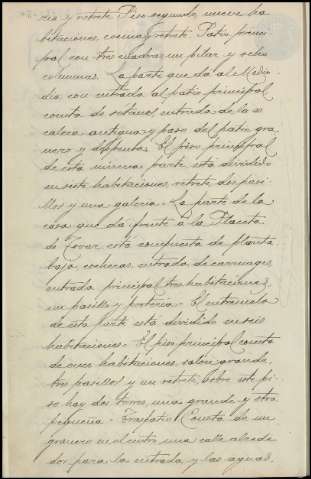 cia y retrete. Piso segundo nueve ha-
bitaciones cocina y retrete. Patio princi-
pal con tres cuadras un pilar y ocho
columnas. La parte que da al Medio-
dia con entrada al patio principal
consta de sotano, entrada de la es-
calera antigua y paso del patio gra-
nero y despensa. El piso principal
de esta misma parte está dividido
en siete habitaciones, retrete dos pasi-
llos y una galeria. La parte de la
casa que dá frente á la Placeta
de Tovar está compuesta de planta
baja, cocheras, entrada de carruages
entrada principal, tres habitaciones,
un pasillo y porteria. El entresuelo
de esta parte está dividido en seis
habitaciones. El piso principal consta
de once habitaciones, salon grande,
tres pasillos y un retrete, sobre este pi-
so hay dos torres, una grande y otra
pequeña. Traspatio. Consta de un
granero en el centro una calle alrede-
dor para la entrada y las aguas.